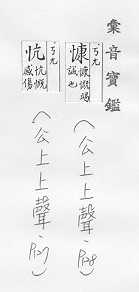 彙音寶鑑
慷 ㄎㄤ 慷慨竭
誠也
(公上上聲, P28)
忼 ㄎㄤ 忼慨
感傷
(公上上聲, P27)